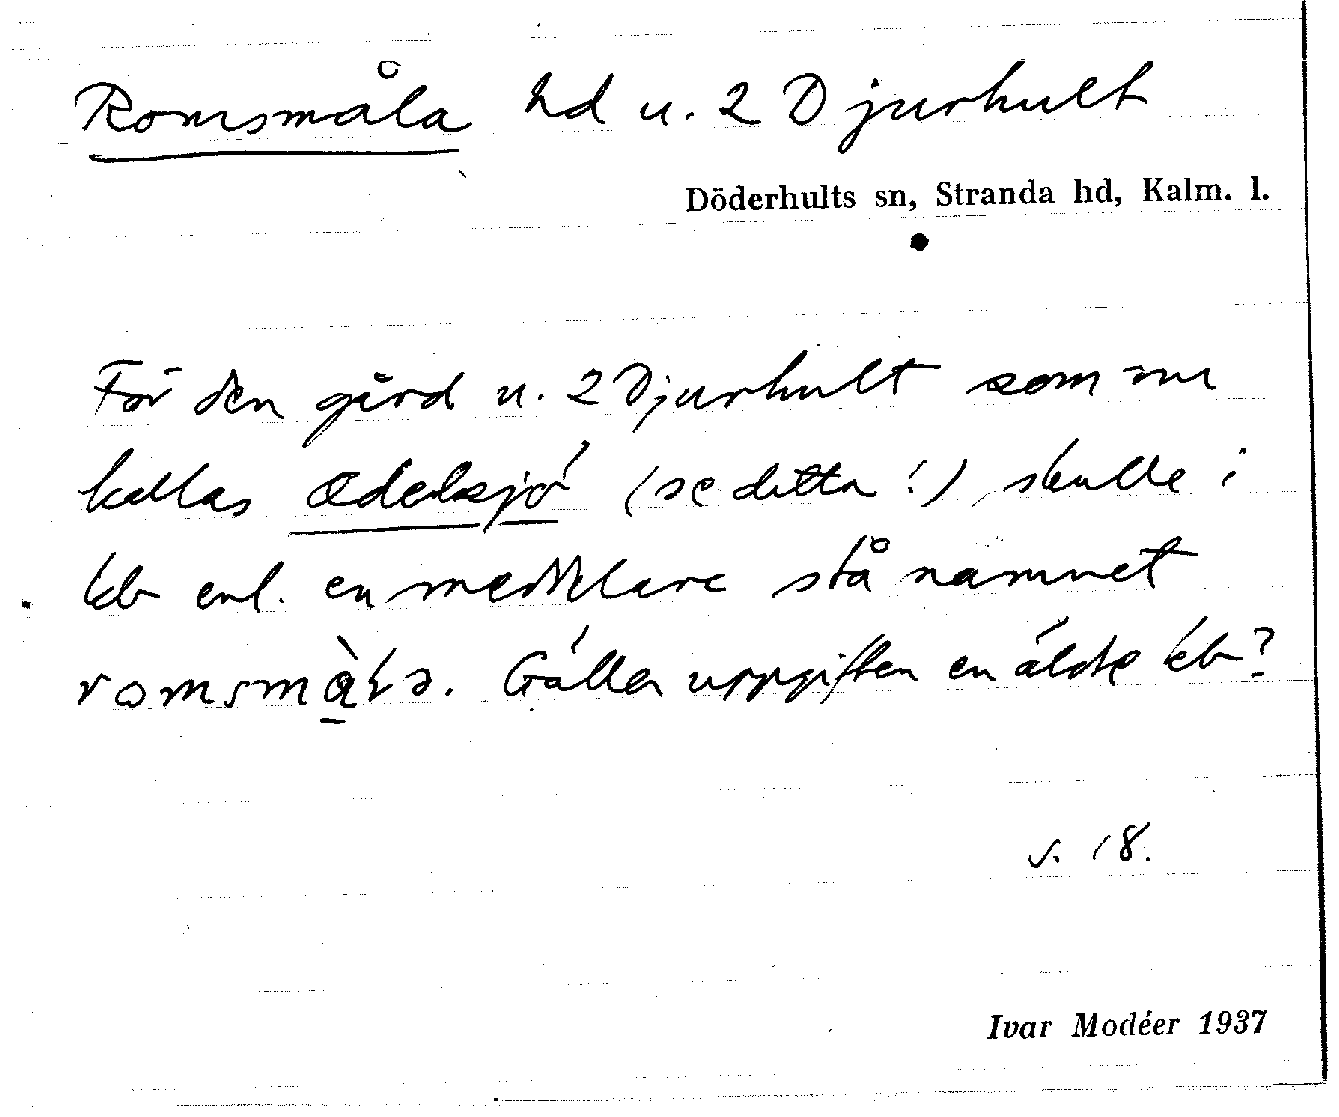 Romsmåla hd u. 2 Djurhult
Döderhults sn, Stranda hd, Kalm. l.
För den gård u. 2 Djurhult som nu
kallas Ädelsjö (se detta!) skulle i
kb enl. en meddelare stå namnet
romsmåla. Gäller uppgiften en äldre kb?
s. 18.
Ivar Modéer 1937